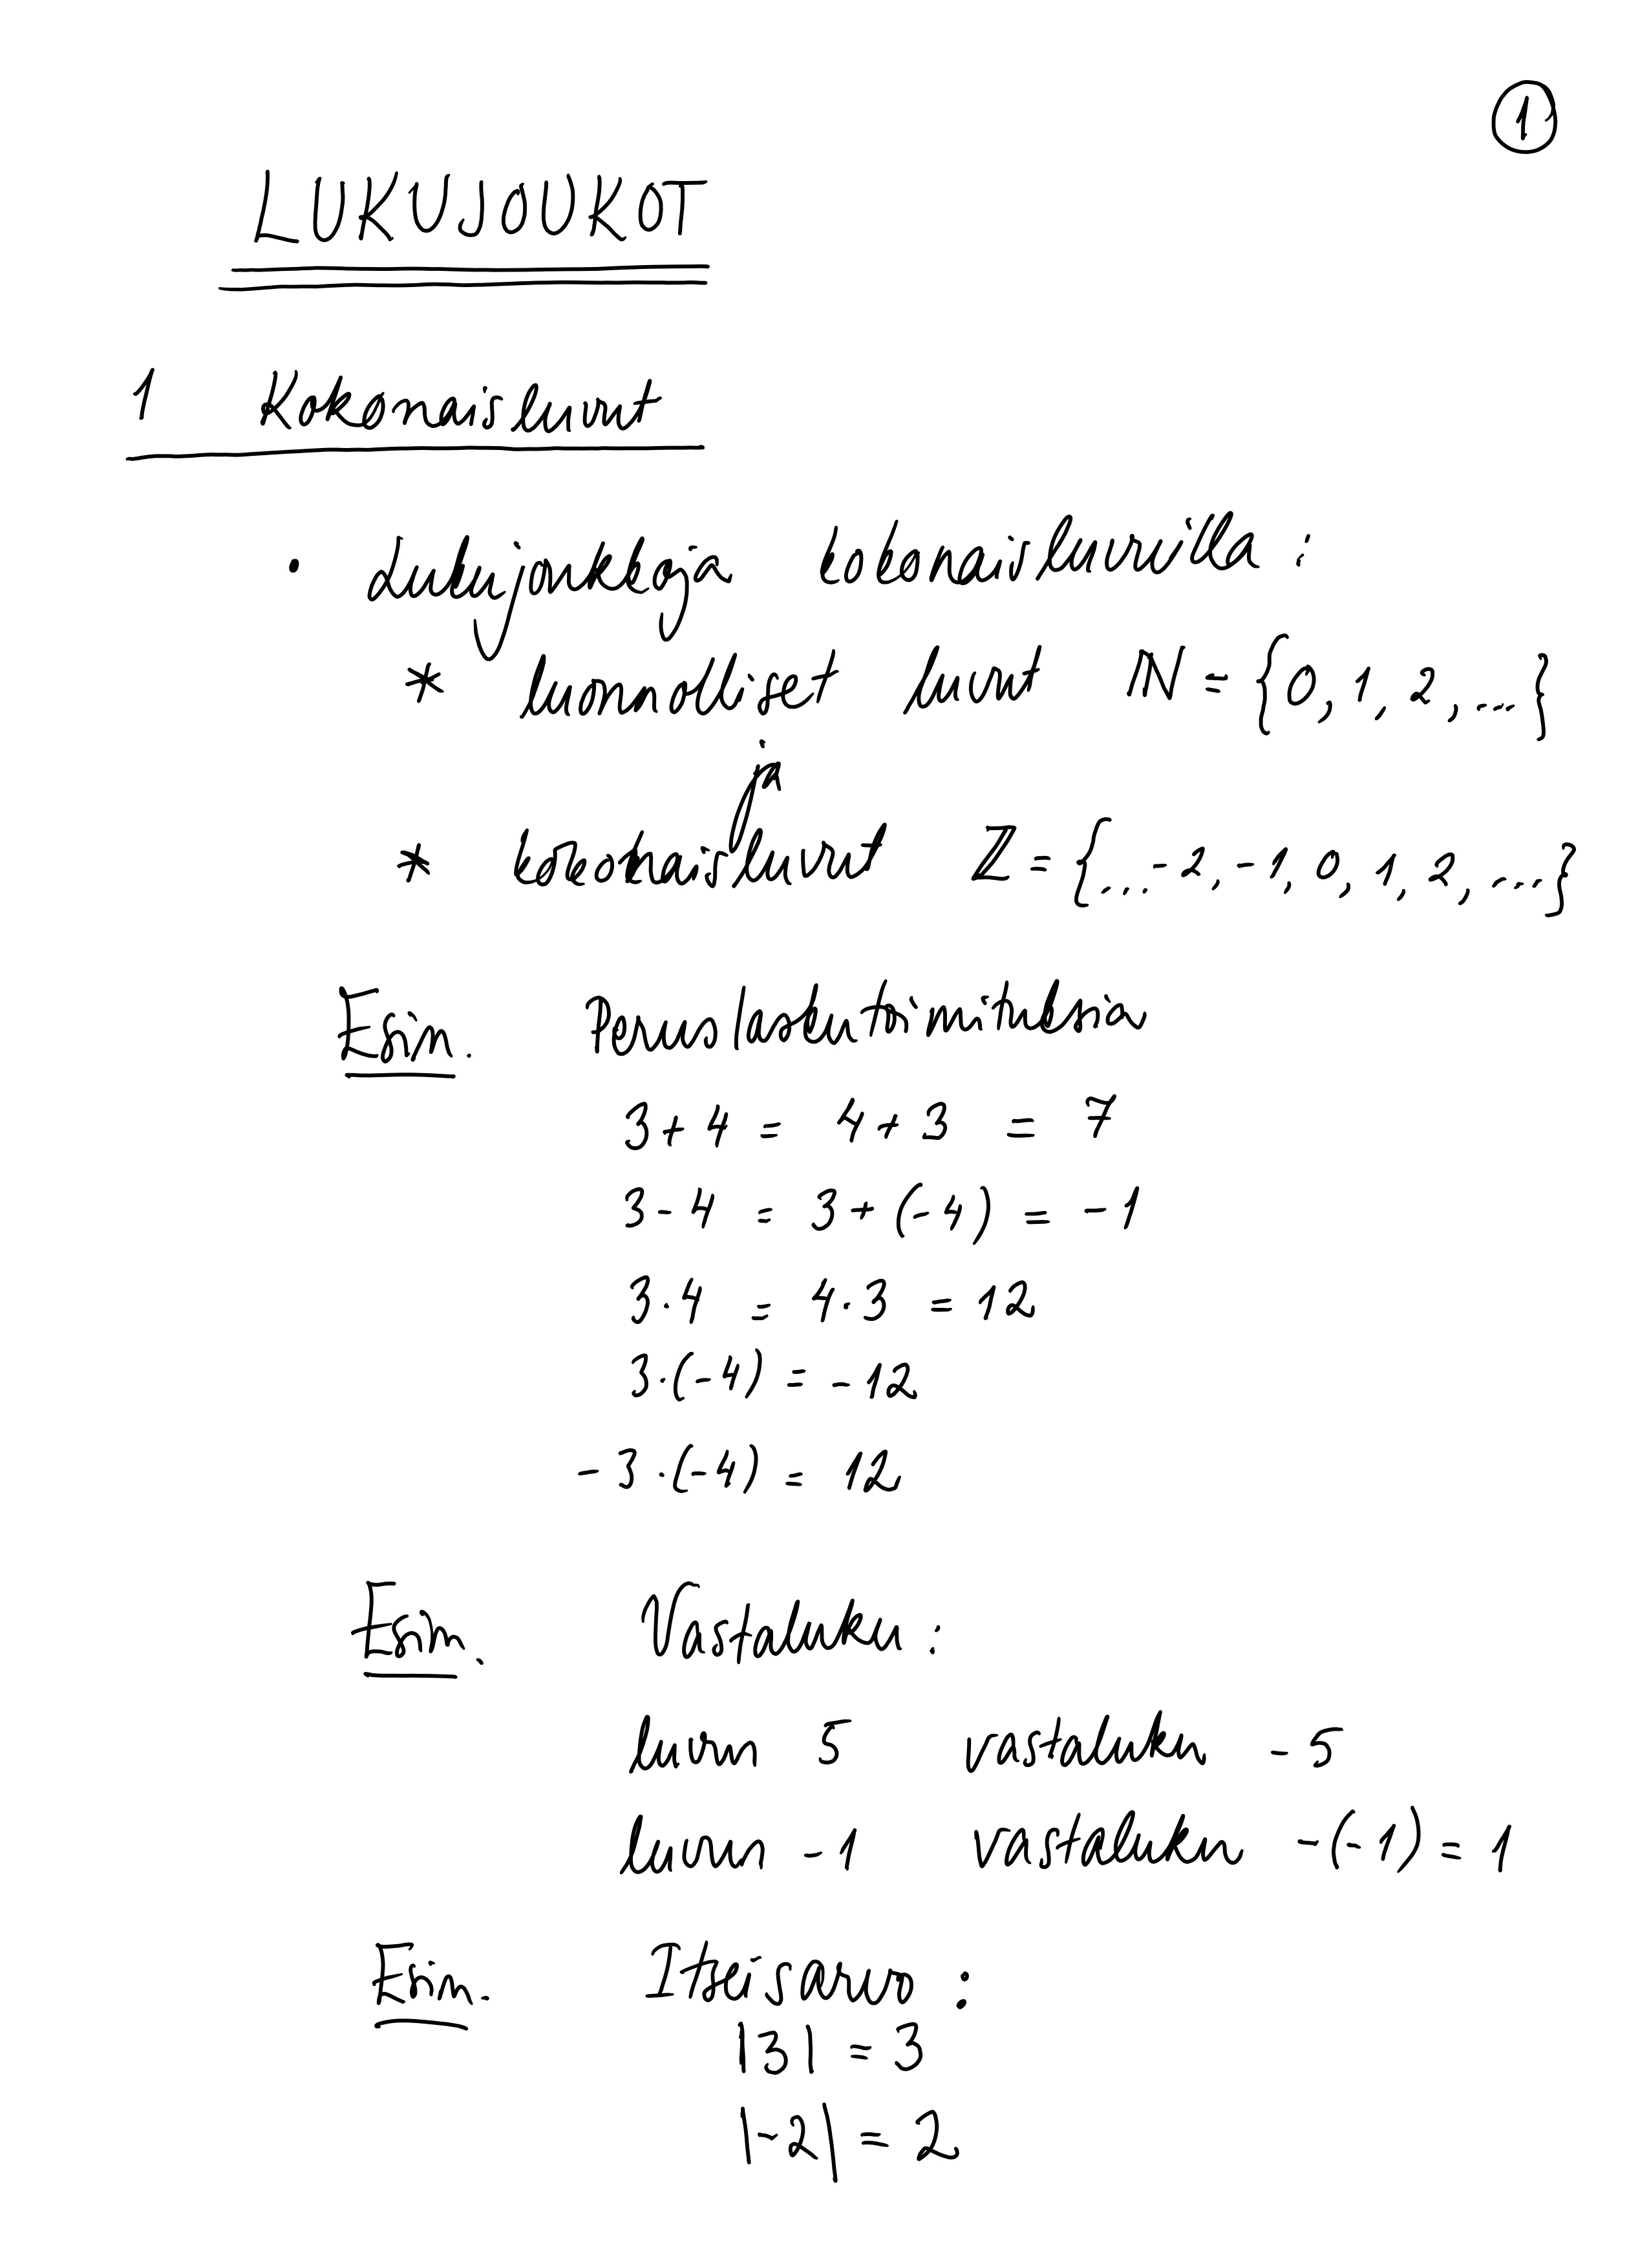 1
LUKUJOUKOT
1 Kokonaisluvut
· Lukujoukkoja kokonaisluvuilla :
* luonnolliset luvut ℕ = {0, 1, 2, ...}
ja
* kokonaisluvut ℤ = {...-2, -1, 0, 1, 2, ...}
Esim. Peruslaskutoimituksia
3 + 4 = 4 + 3 = 7
3 - 4 = 3 + (-4) = -1
3 · 4 = 4 · 3 = 12
3 · (-4) = -12
-3 · (-4) = 12
Esim. Vastaluku :
luvun 5 vastaluku -5
luvun -1 vastaluku -(-1) = 1
Esim. Itseisarvo :
|3| = 3
|-2| = 2